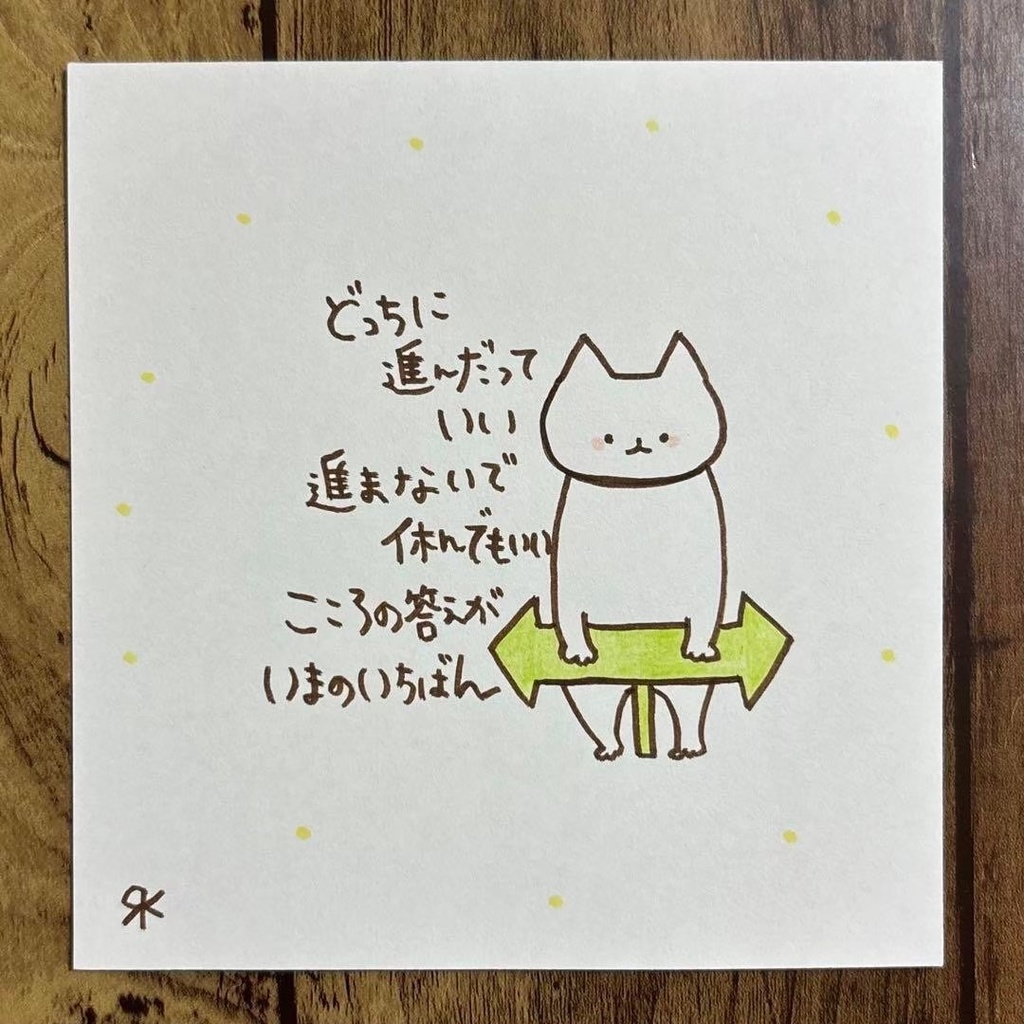 どっちに
進んだって
いい
進まないで
休んでもいい
こころの答えが
いまのいちばん